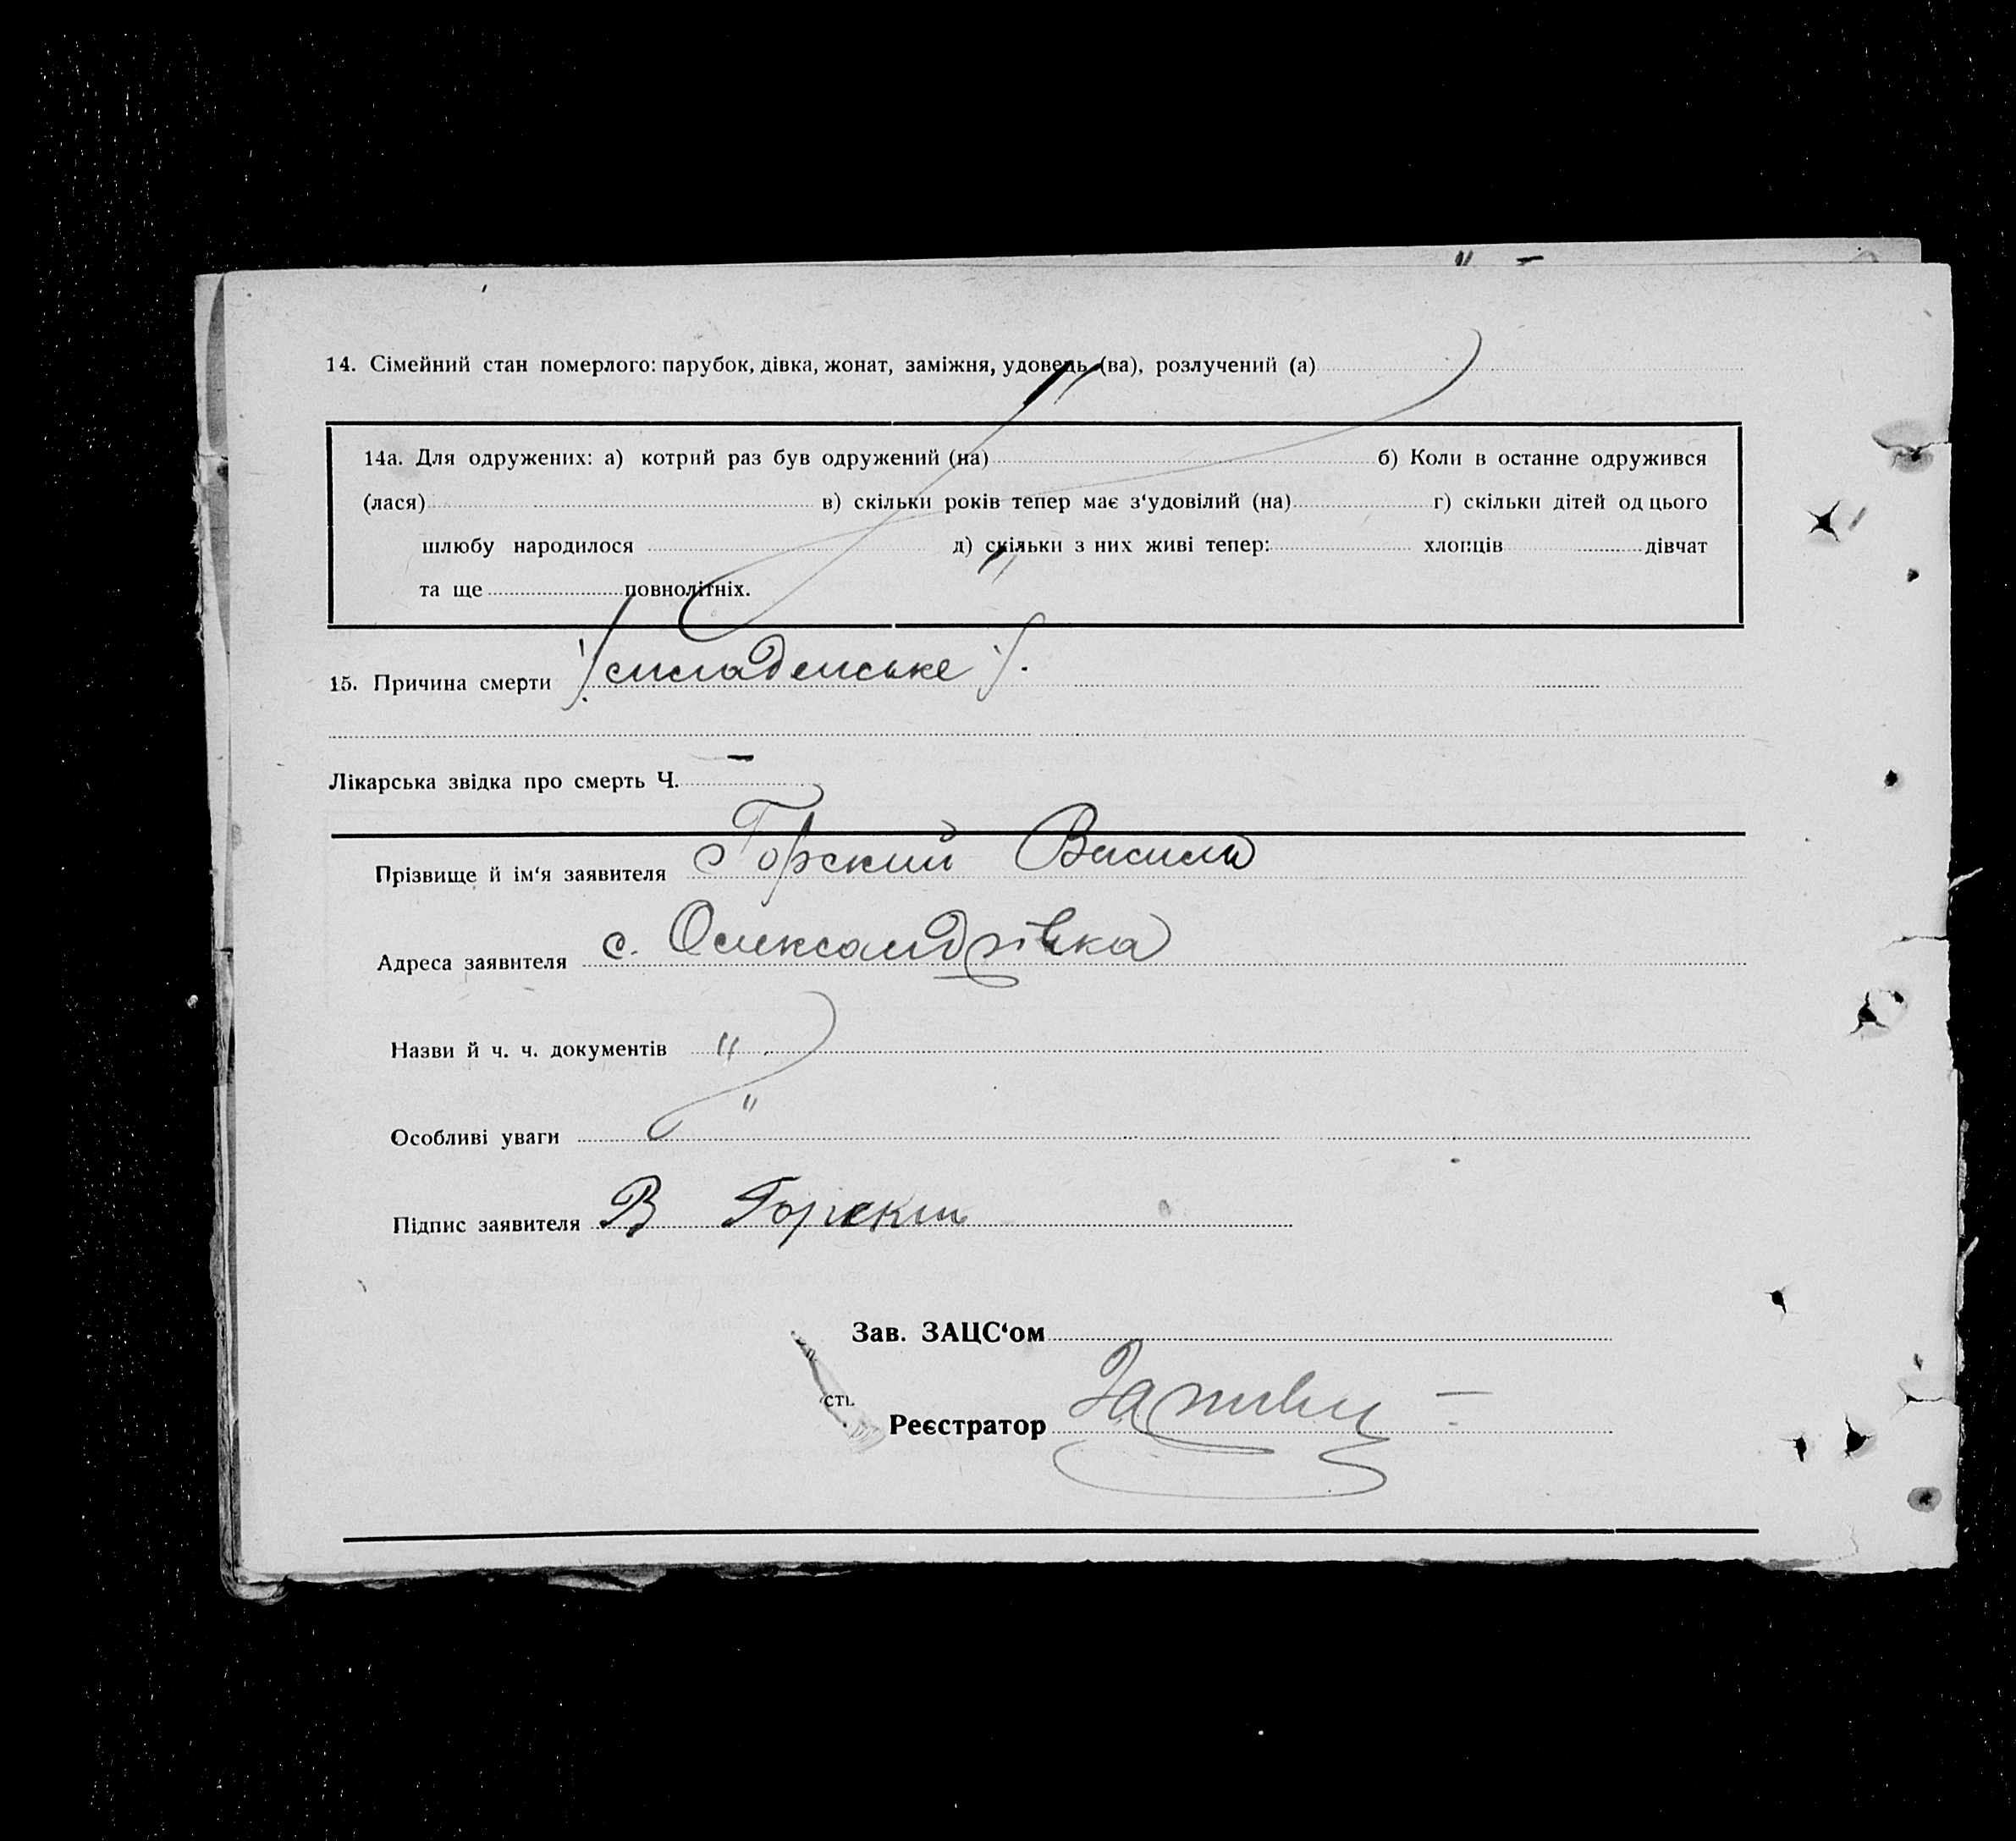 14. Сімейний стан померлого: парубок, дівка, жонат, заміжня, удовець (ва), розлучений (а)
14а. Для одружених: а) котрий раз був одружений (на) б) Коли в останнє одружився
(лася) в) скільки років тепер має з‘удовілий (на) г) скільки дітей од цього
шлюбу народилося д) скільки з них живі тепер: хлопців дівчат
та ще повнолітніх.
15. Причина смерти
Лікарська звідка про смерть Ч. –
Прізвище й ім‘я заявителя Горский Василь
Адреса заявителя с. Олександрівка
Назви й ч. ч. документів "
Особливі уваги "
Підпис заявителя В Горский
Зав. ЗАЦС‘ом
сть
Реєстратор